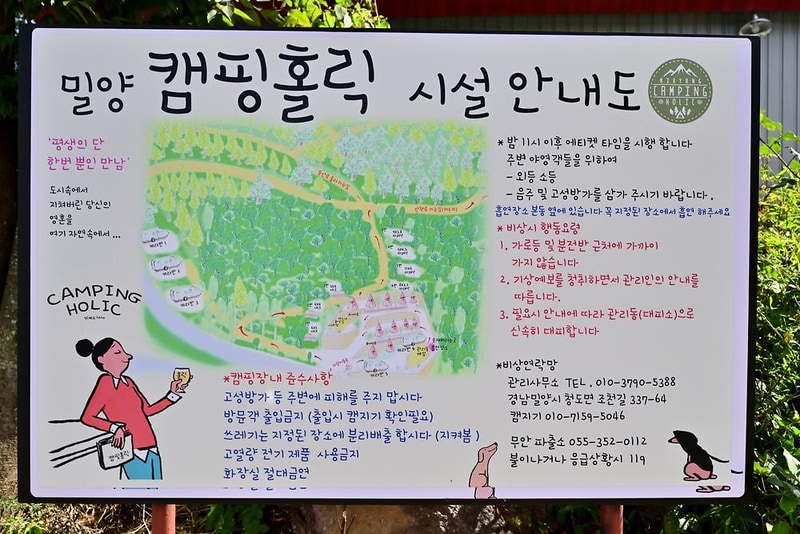 밀양 캠핑홀릭 시설 안내도
MIRYANG CAMPING HOLIC
'평생의 단
한번 뿐인 만남'
도시속에서
지쳐버린 당신의
영혼을
여기 자연속에서...
CAMPING
HOLIC
홀릭
캠핑홀릭
*캠핑장내 준수사항*
고성방가 등 주변에 피해를 주지 맙시다
방문객 출입금지 (출입시 캠지기 확인필요)
쓰레기는 지정된 장소에 분리배출 합시다 (지켜봄)
고열량 전기 제품 사용금지
화장실 절대금연
* 밤 11시 이후 에티켓 타임을 시행 합니다
주변 야영객들을 위하여
- 외등 소등
- 음주 및 고성방가를 삼가 주시기 바랍니다.
흡연장소 본동 옆에 있습니다 꼭 지정된 장소에서 흡연 해주세요
* 비상시 행동요령
1. 가로등 및 분전반 근처에 가까이
가지 않습니다
2. 기상예보를 청취하면서 관리인의 안내를
따릅니다.
3. 필요시 안내에 따라 관리동(대피소)으로
신속히 대피합니다
*비상연락망
관리사무소 TEL. 010-3790-5388
경남밀양시 청도면 조천길 337-64
캠지기 010-7159-5046
무안 파출소 055-352-0112
불이나거나 응급상황시 119